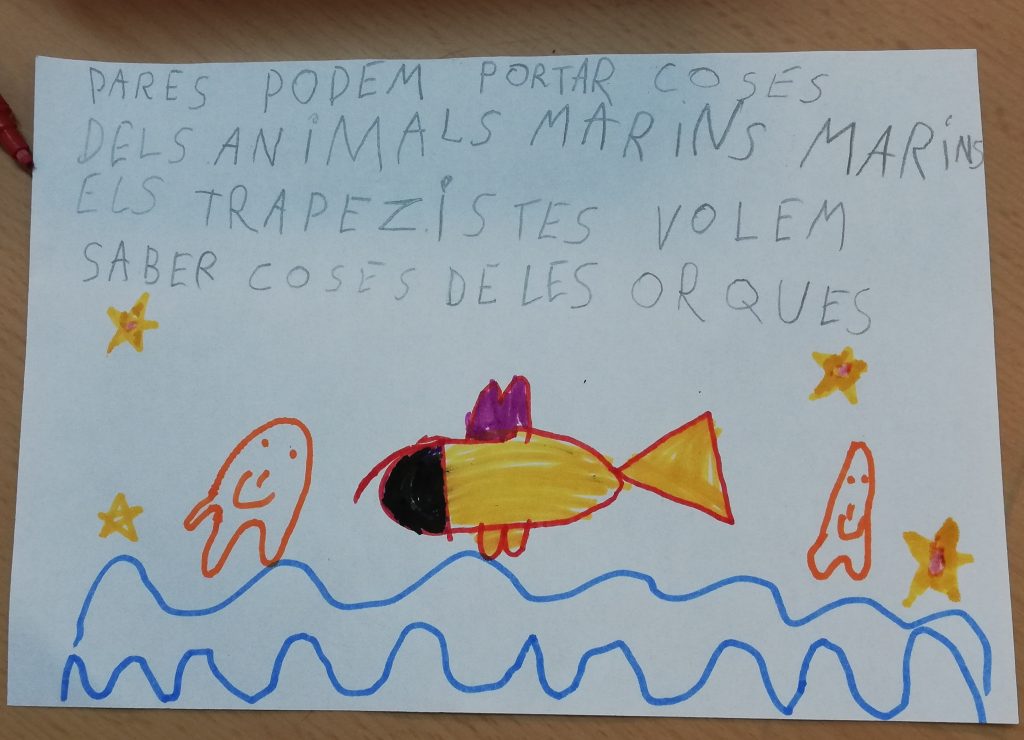 PARES PODEM PORTAR COSES
DELS ANiMALS MARiNS MARiNS
ELS TRAPEZiSTES VOLEM
SABER COSES DE LES ORQUES